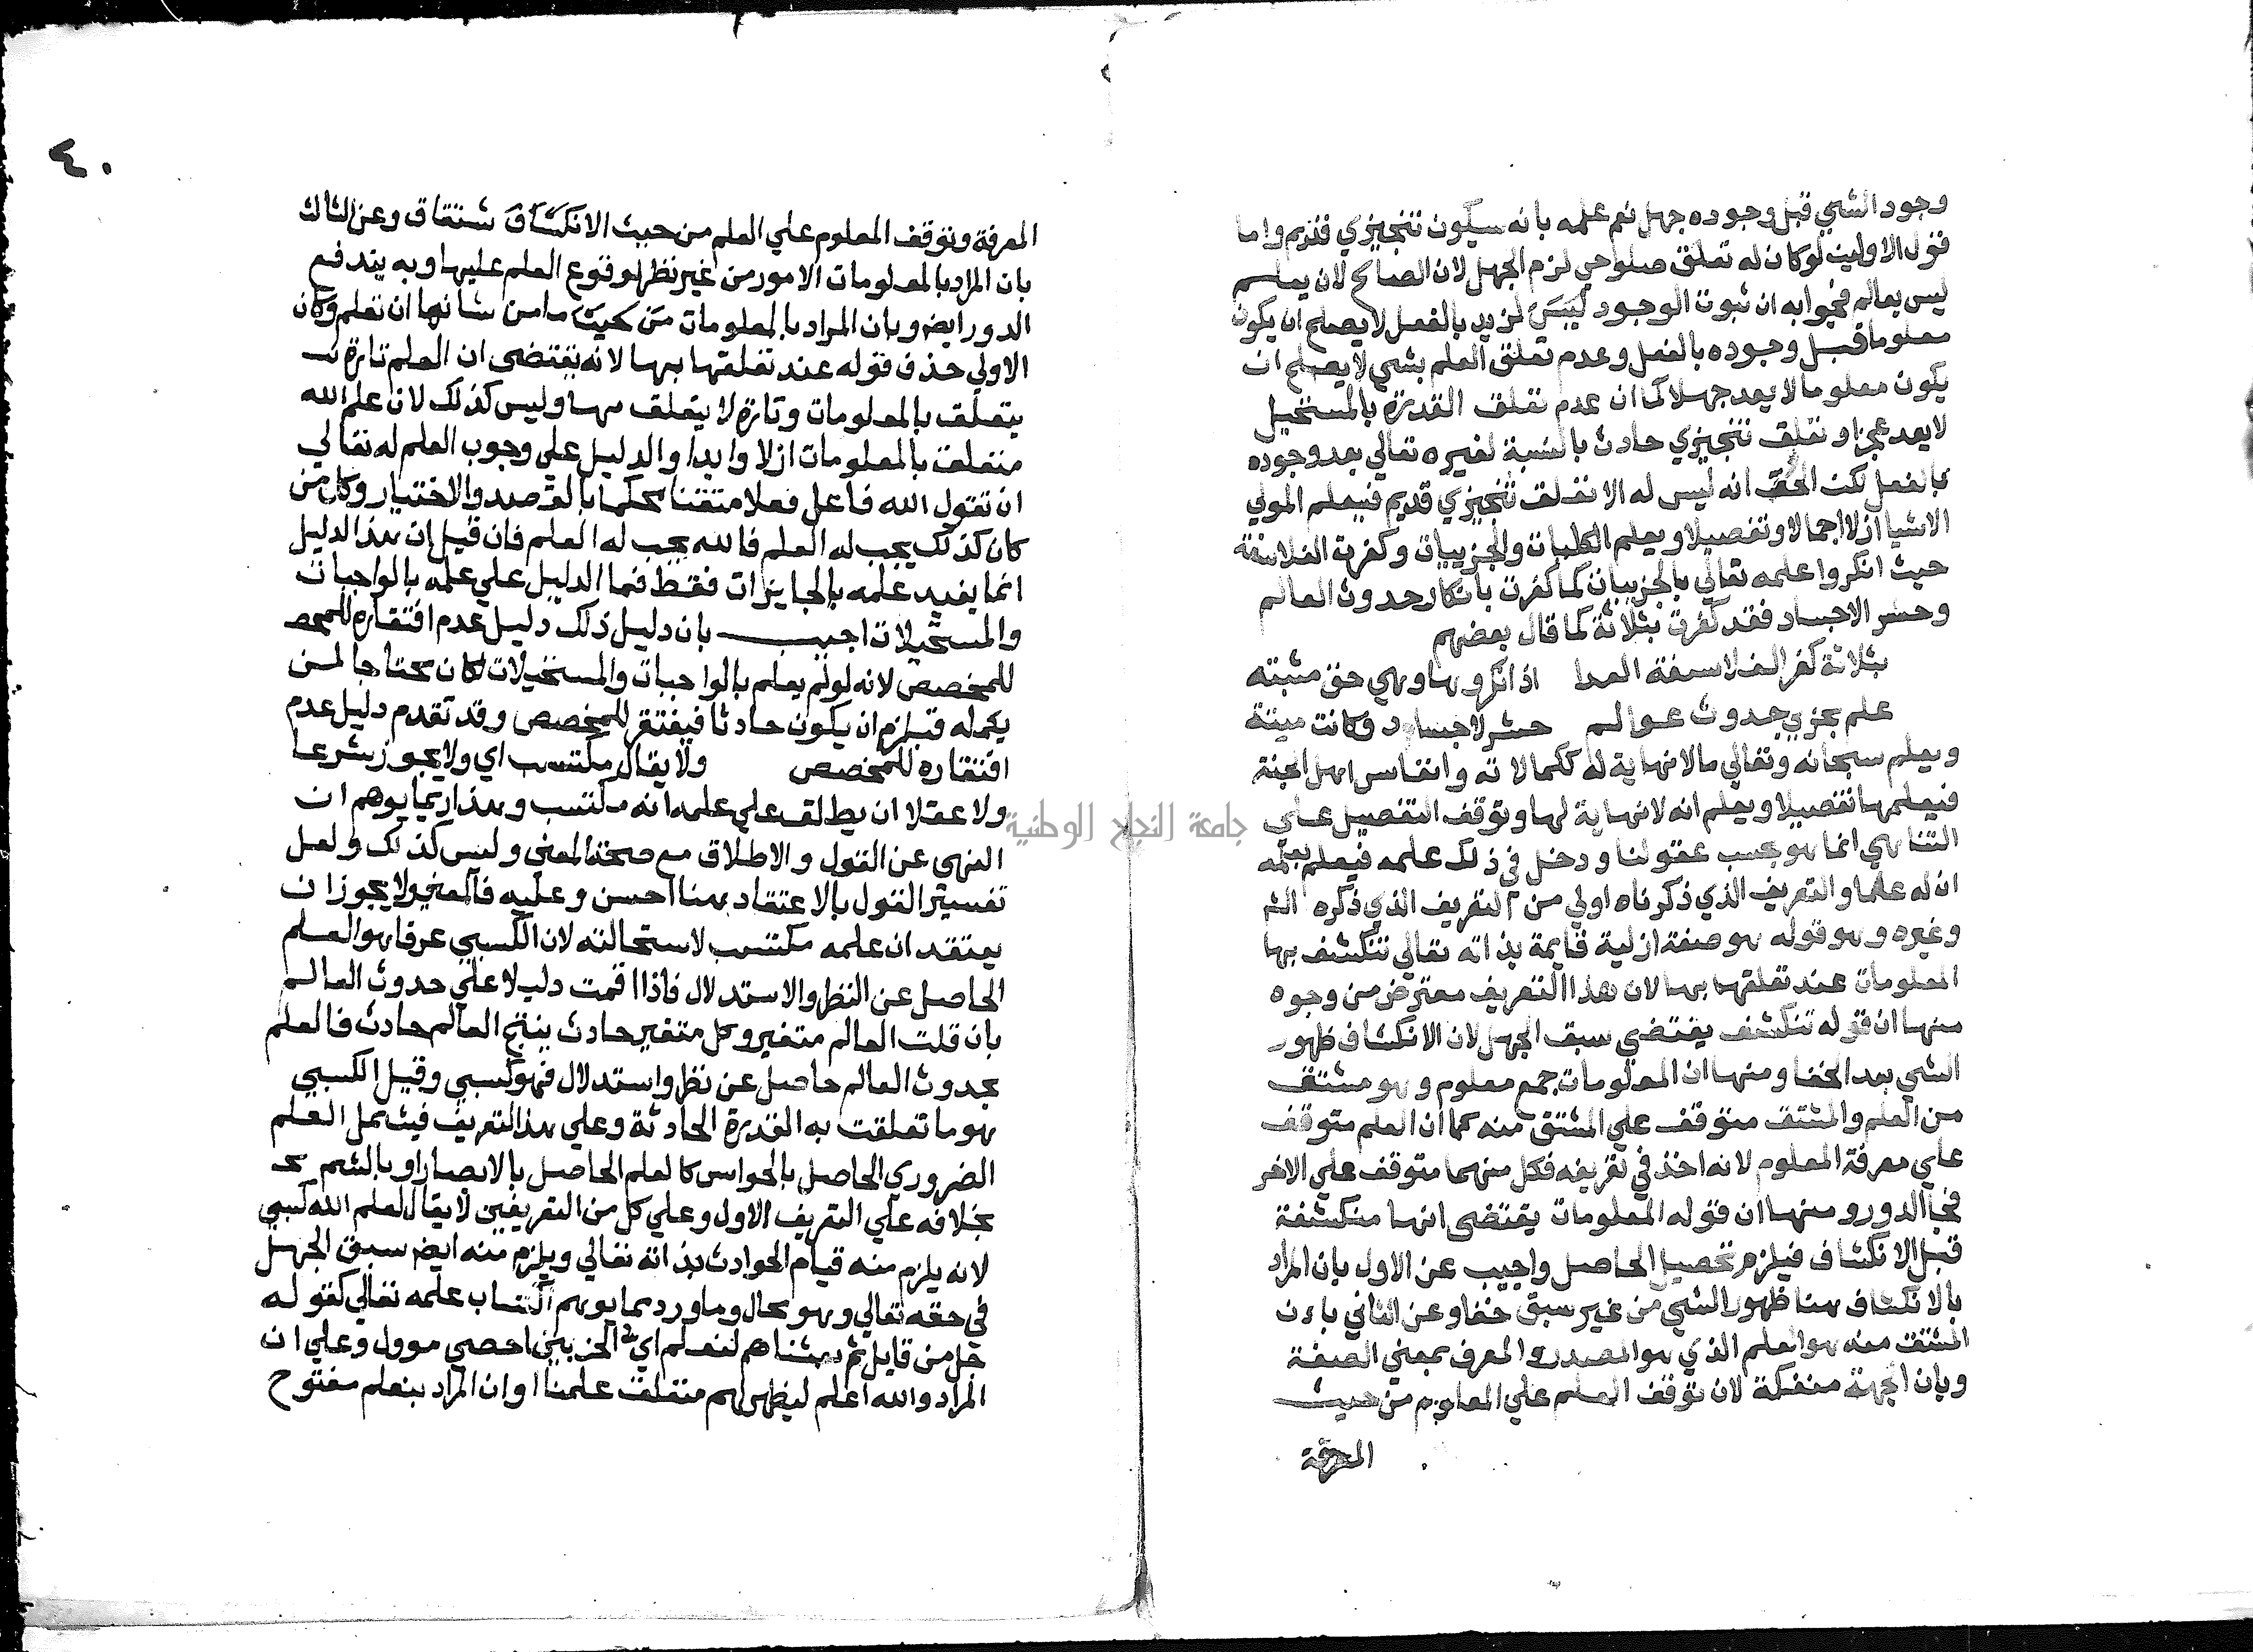 وجود الشي قبل وجوده جهل نعم علمه بانه سيكون تنجيزي قديم واما
قول الاولين لو كان له تعلق صلوحي لزم الجهل لان الصالح لان يعلم
ليس بعالم فجوابه ان ثبوت الوجود لزيد بالفعل لا يصلح ان يكون
معلوما قبل وجوده بالفعل وعدم تعلق العلم بشي لا يصلح ان
يكون معلوما لا يعد جهلا كما ان عدم تعلق القدرة بالمستحيل
لا يعد عجزا وتعلق تنجيزي حادث بالنسبة لغيره تعالي بعد وجوده
بالفعل لكن الحق انه ليس له الا تعلق تنجيزي قديم فيعلم المولي
الاشيا ازلا اجمالا وتفصيلا ويعلم الكليات والجزييات وكفرت الفلاسفة
حيث انكروا علمه تعالي بالجزييات كما كفرت بانكار حدوث العالم
وحشر الاجساد فقد كفرت بثلاثة كما قال بعضهم
بثلاثة كفر الفلاسفة العدا اذ انكروها وهي حق مثبته
علم بجزي حدوث عوالم حشر لاجساد وكانت ميتة
ويعلم سبحانه وتعالي مالا نهاية له ككمالاته وانفاس اهل الجنة
فيعلمها تفصيلا ويعلم انه لا نهاية لها وتوقف التفصيل علي
التناهي انما هو بحسب عقولنا ودخل في ذلك علمه فيعلم بعلمه
ان له علما والتعريف الذي ذكرناه اولي من التعريف الذي ذكره الشم
وغيره وهو قوله هو صفة ازلية قايمة بذاته تعالي تنكشف بها
المعلومات عند تعلقها بها لان هذا التعريف معترض من وجوه
منها ان قوله تنكشف يقتضي سبق الجهل لان الانكشاف ظهور
الشي بعد الخفا ومنها ان المعلومات جمع معلوم وهو مشتق
من العلم والمشتق متوقف علي المشتق منه كما ان العلم متوقف
علي معرفة المعلوم لانه اخذ في تعريفه فكل منهما متوقف علي الاخر
فجا الدور ومنها ان قوله المعلومات يقتضي انها منكشفة
قبل الانكشاف فيلزم تحصيل الحاصل واجيب عن الاول بان المراد
بالانكشاف هنا ظهور الشي من غير سبق خفا وعن الثاني بان
المشتق منه هو العلم الذي هو المصدر والمعرف بمعني الصفة
وبان الجهة منفكة لان توقف العلم علي المعلوم من حيث
المعرفة
٤٠
المعرفة وتوقف المعلوم علي العلم من حيث الانكشاف شتقاق وعن الثالث
بان المراد بالمعلومات الامور من غير نظر لوقوع العلم عليها وبه يندفع
الدور ايض وبان المراد بالمعلومات من حيث ما من شانها ان تعلم وكان
الاولي حذف قوله عند تعلقها بها لانه يقتضي ان العلم تارة
يتعلق بالمعلومات وتارة لا يتعلق بها وليس كذلك لان علم الله
متعلق بالمعلومات ازلا وابدا والدليل علي وجوب العلم له تعالي
ان تقول الله فاعل فعلا متقنا محكما بالقصد والاختيار وكل من
كان كذلك يجب له العلم فالله يجب له العلم فان قيل ان هذا الدليل
انما يفيد علمه بالجايزات فقط فما الدليل علي علمه بالواجبات
والمستحيلات اجيب بان دليل ذلك دليل عدم افتقاره للمخص
للمخصص لانه لو لم يعلم بالواجبات والمستحيلات لكان محتاجا لمن
يكمله فيلزم ان يكون حادثا فيفتقر للمخصص وقد تقدم دليل عدم
افتقاره للمخصص ولا يقال مكتسب اي ولا يجوز شرعا
ولا عقلا ان يطلق علي علمه انه مكتسب وهذا ربما يوهم ان
النهي عن القول والاطلاق مع صحة المعني وليس كذلك ولعل
تفسير القول بالاعتقاد هنا احسن وعليه فالمعني ولا يجوز ان
يعتقد ان علمه مكتسب لاستحالته لان الكسبي عرفا هو العلم
الحاصل عن النظر والاستدلال فاذا اقمت دليلا علي حدوث العالم
بان قلت العالم متغير وكل متغير حادث ينتج العالم حادث فالعلم
بحدوث العالم حاصل عن نظر واستدلال فهو كسبي وقيل الكسبي
هو ما تعلقت به القدرة الحادثة وعلي هذا التعريف فيشمل العلم
الضروري الحاصل بالحواس كالعلم الحاصل بالابصار او بالشم
بخلافه علي التعريف الاول وعلي كل من التعريفين لا يقال لعلم الله كسبي
لانه يلزم منه قيام الحوادث بذاته تعالي ويلزم منه ايض سبق الجهل
في حقه تعالي وهو محال وما ورد مما يوهم اكتساب علمه تعالي كقوله
جل من قايل ثم بعثناهم لنعلم اي الحزبين احصي موول وعلي ان
المراد والله اعلم ليظهر لهم متعلق علمنا او ان المراد بنعلم مفتوح
جامعة النجاح الوطنية